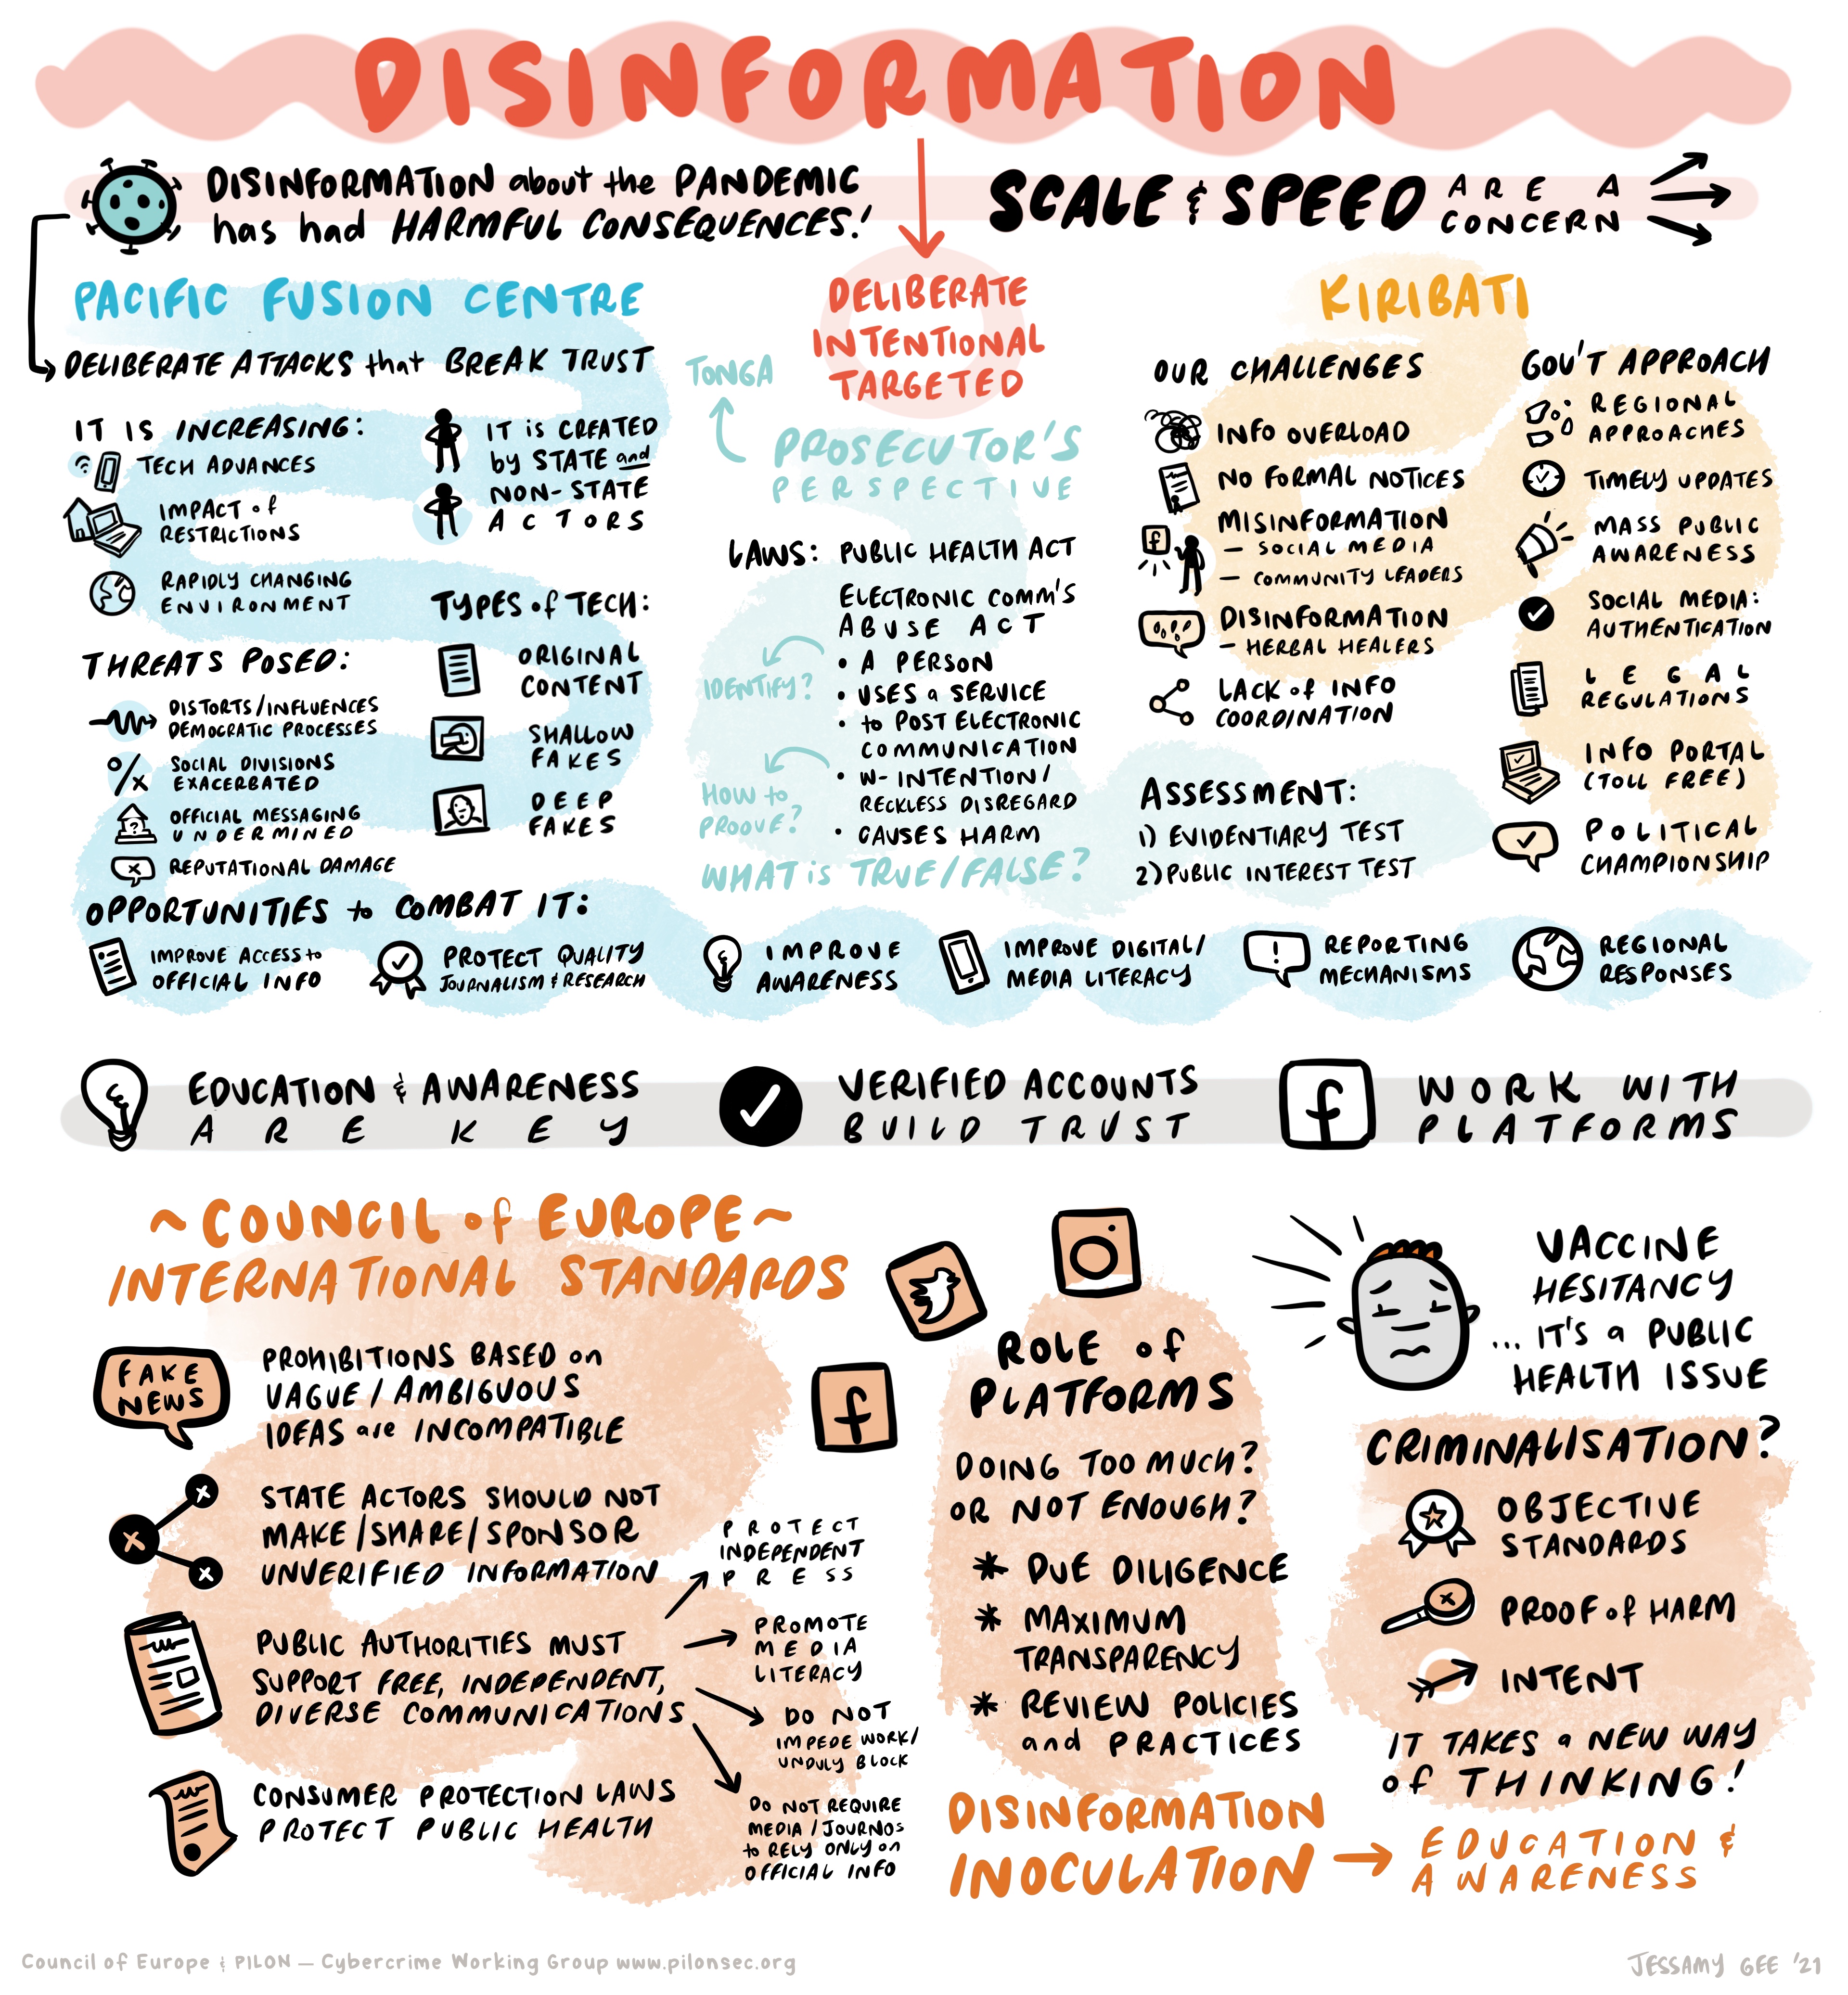 DISINFORMATION
DISINFORMATION about the PANDEMIC
has had HARMFUL CONSEQUENCES!
SCALE & SPEED ARE A
CONCERN
PACIFIC FUSION CENTRE
DELIBERATE ATTACKS that BREAK TRUST
IT IS INCREASING:
TECH ADVANCES
IMPACT of
RESTRICTIONS
RAPIDLY CHANGING
ENVIRONMENT
IT is CREATED
by STATE and
NON-STATE
ACTORS
THREATS POSED:
DISTORTS/INFLUENCES
DEMOCRATIC PROCESSES
SOCIAL DIVISIONS
EXACERBATED
?
OFFICIAL MESSAGING
UNDERMINED
REPUTATIONAL DAMAGE
TYPES of TECH:
ORIGINAL
CONTENT
SHALLOW
FAKES
DEEP
FAKES
DELIBERATE
INTENTIONAL
TARGETED
TONGA
PROSECUTOR'S
PERSPECTIVE
LAWS: PUBLIC HEALTH ACT
ELECTRONIC COMM'S
ABUSE ACT
• A PERSON
IDENTIFY?
• USES a SERVICE
• to POST ELECTRONIC
COMMUNICATION
• W- INTENTION/
RECKLESS DISREGARD
HOW to
PROOVE?
• CAUSES HARM
WHAT is TRUE/FALSE?
ASSESSMENT:
1) EVIDENTIARY TEST
2) PUBLIC INTEREST TEST
KIRIBATI
OUR CHALLENGES
INFO OVERLOAD
NO FORMAL NOTICES
f
MISINFORMATION
– SOCIAL MEDIA
– COMMUNITY LEADERS
DISINFORMATION
– HERBAL HEALERS
LACK of INFO
COORDINATION
GOV'T APPROACH
REGIONAL
APPROACHES
TIMELY UPDATES
MASS PUBLIC
AWARENESS
SOCIAL MEDIA:
AUTHENTICATION
LEGAL
REGULATIONS
INFO PORTAL
(TOLL FREE)
POLITICAL
CHAMPIONSHIP
OPPORTUNITIES to COMBAT IT:
IMPROVE ACCESS to
OFFICIAL INFO
PROTECT QUALITY
JOURNALISM & RESEARCH
IMPROVE
AWARENESS
IMPROVE DIGITAL/
MEDIA LITERACY
!
REPORTING
MECHANISMS
REGIONAL
RESPONSES
EDUCATION & AWARENESS
ARE KEY
VERIFIED ACCOUNTS
BUILD TRUST
f
WORK WITH
PLATFORMS
~ COUNCIL of EUROPE ~
INTERNATIONAL STANDARDS
FAKE
NEWS
PROHIBITIONS BASED on
VAGUE / AMBIGUOUS
IDEAS are INCOMPATIBLE
STATE ACTORS SHOULD NOT
MAKE/SHARE/SPONSOR
UNVERIFIED INFORMATION
PUBLIC AUTHORITIES MUST
SUPPORT FREE, INDEPENDENT,
DIVERSE COMMUNICATIONS
PROTECT
INDEPENDENT
PRESS
PROMOTE
MEDIA
LITERACY
DO NOT
IMPEDE WORK/
UNDULY BLOCK
DO NOT REQUIRE
MEDIA/JOURNOS
to RELY ONLY on
OFFICIAL INFO
CONSUMER PROTECTION LAWS
PROTECT PUBLIC HEALTH
f
ROLE of
PLATFORMS
DOING TOO MUCH?
OR NOT ENOUGH?
* DUE DILIGENCE
* MAXIMUM
TRANSPARENCY
* REVIEW POLICIES
and PRACTICES
VACCINE
HESITANCY
... IT'S a PUBLIC
HEALTH ISSUE
CRIMINALISATION?
OBJECTIVE
STANDARDS
PROOF of HARM
INTENT
IT TAKES a NEW WAY
of THINKING!
DISINFORMATION
INOCULATION
EDUCATION &
AWARENESS
Council of Europe & PILON — Cybercrime Working Group www.pilonsec.org
JESSAMY GEE '21